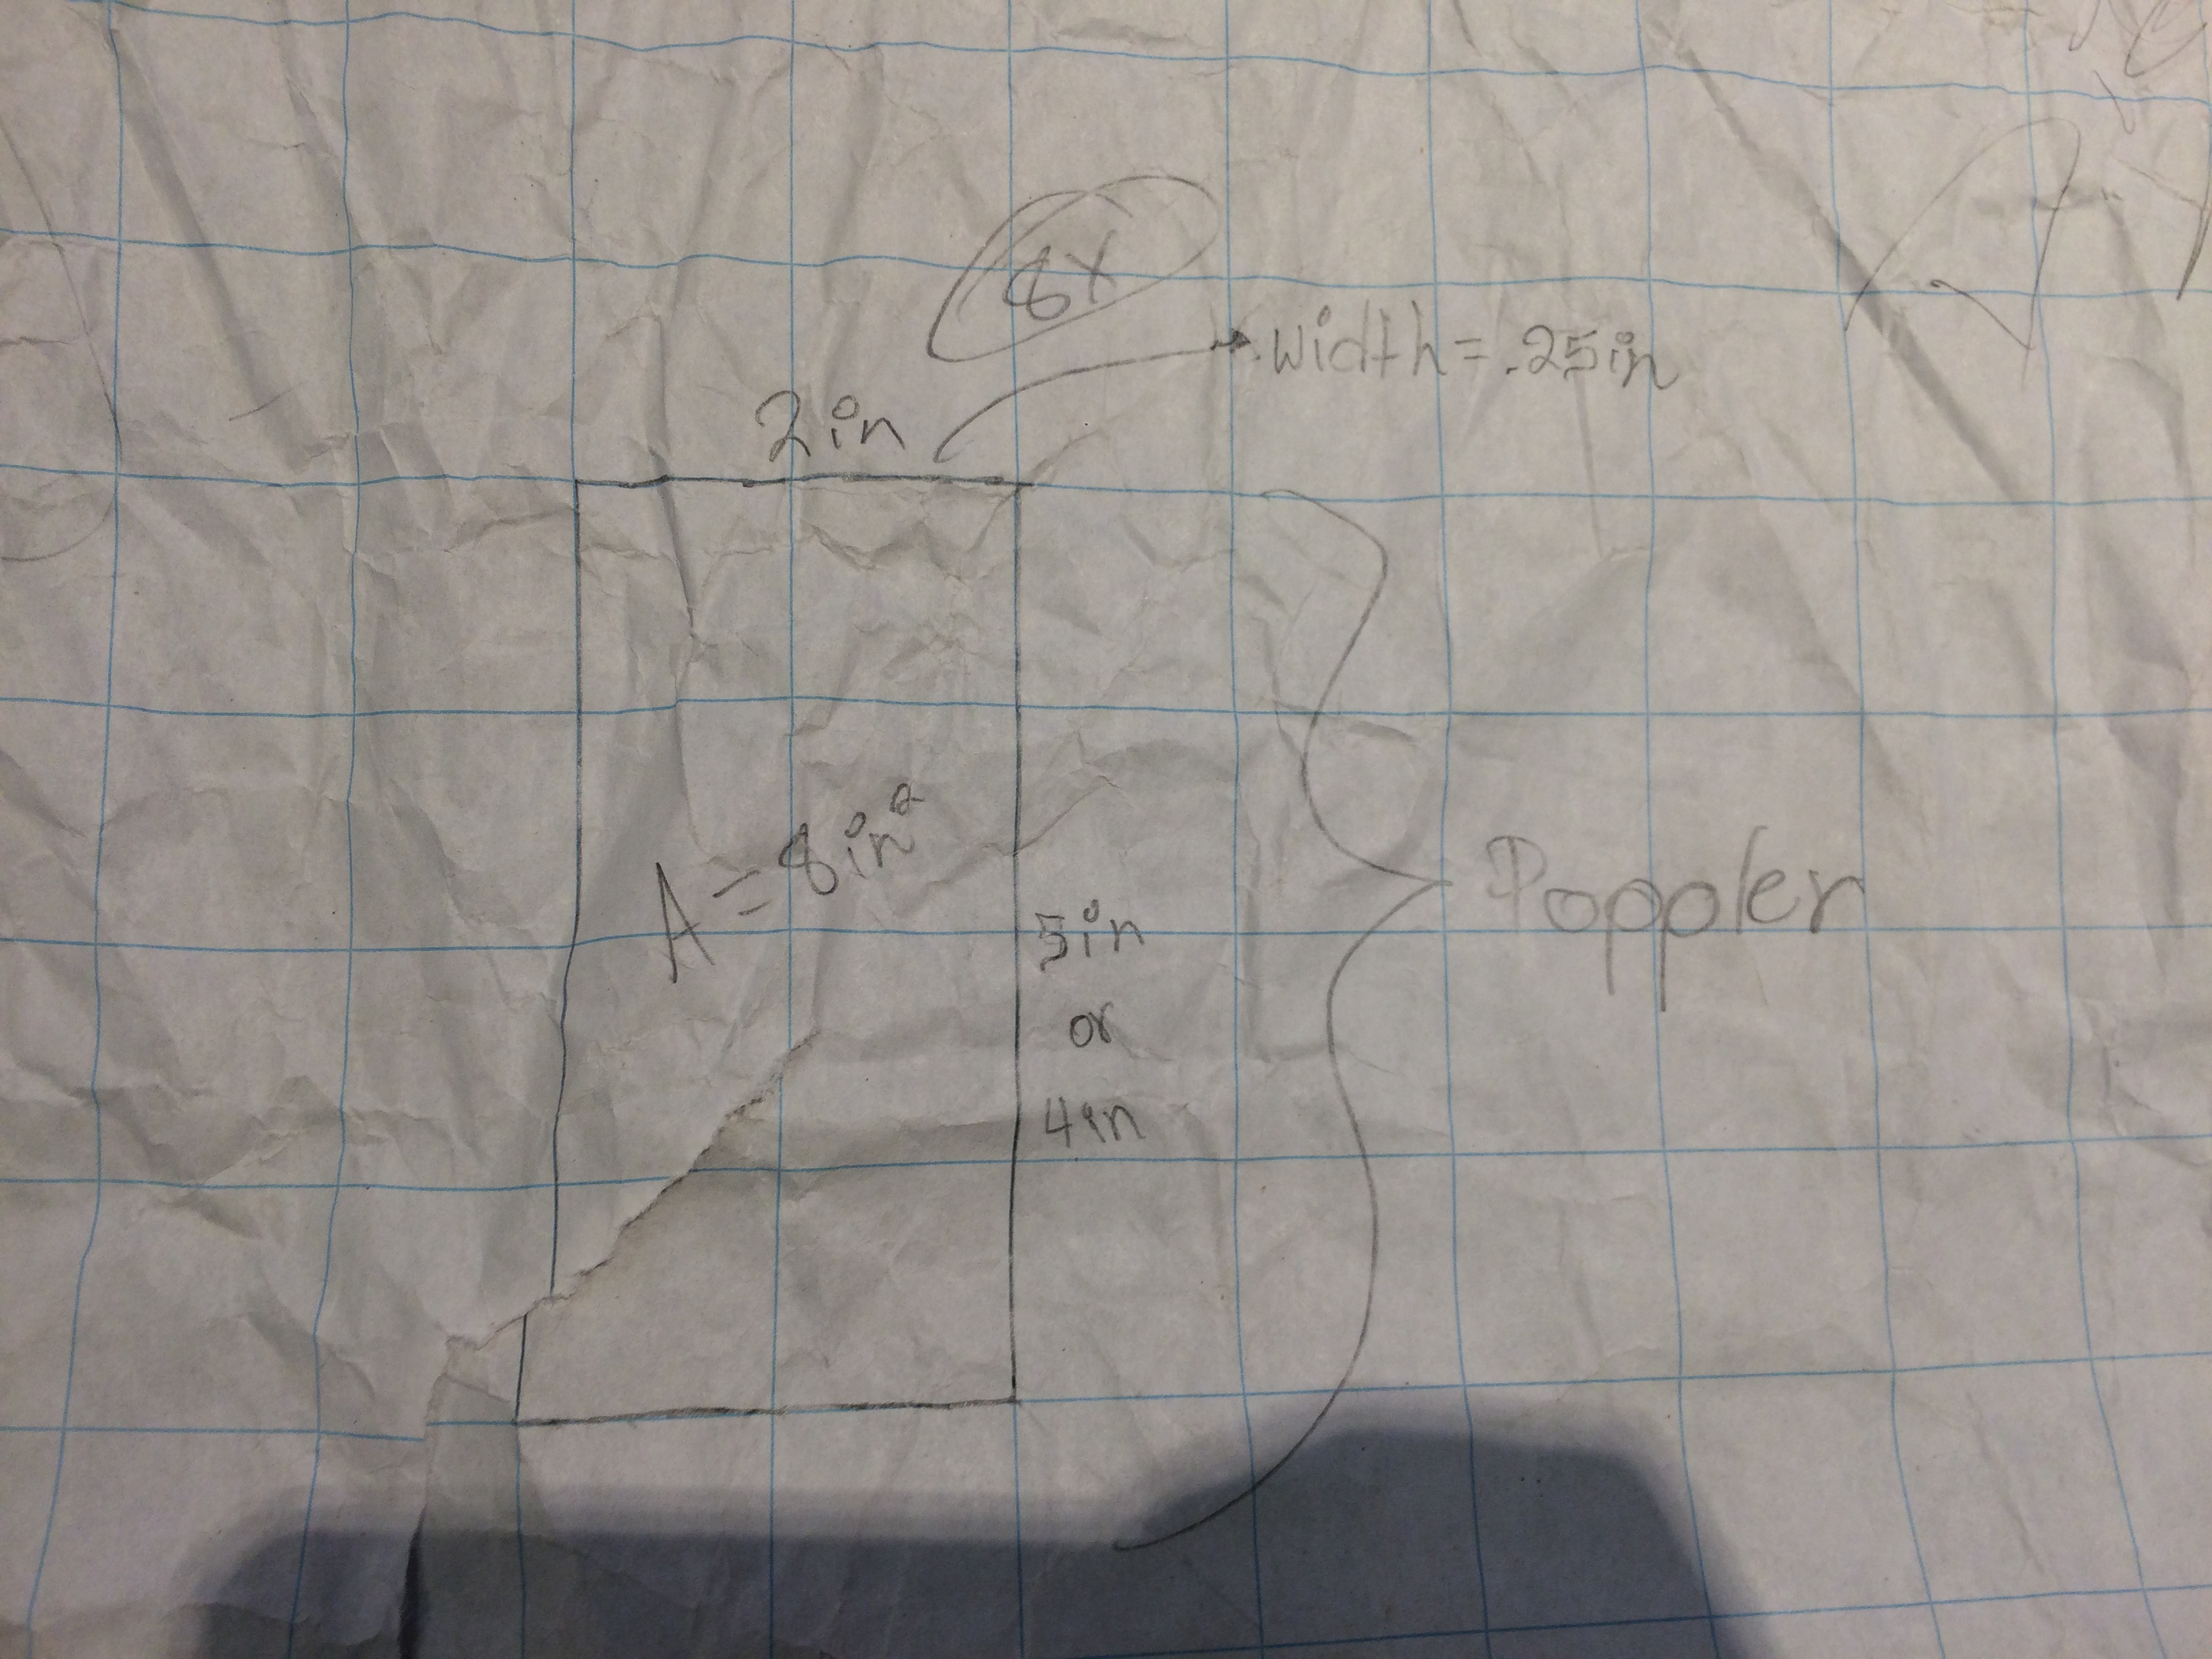 8X
width = .25in
2in
A = 8in²
5in
or
4in
Poppler